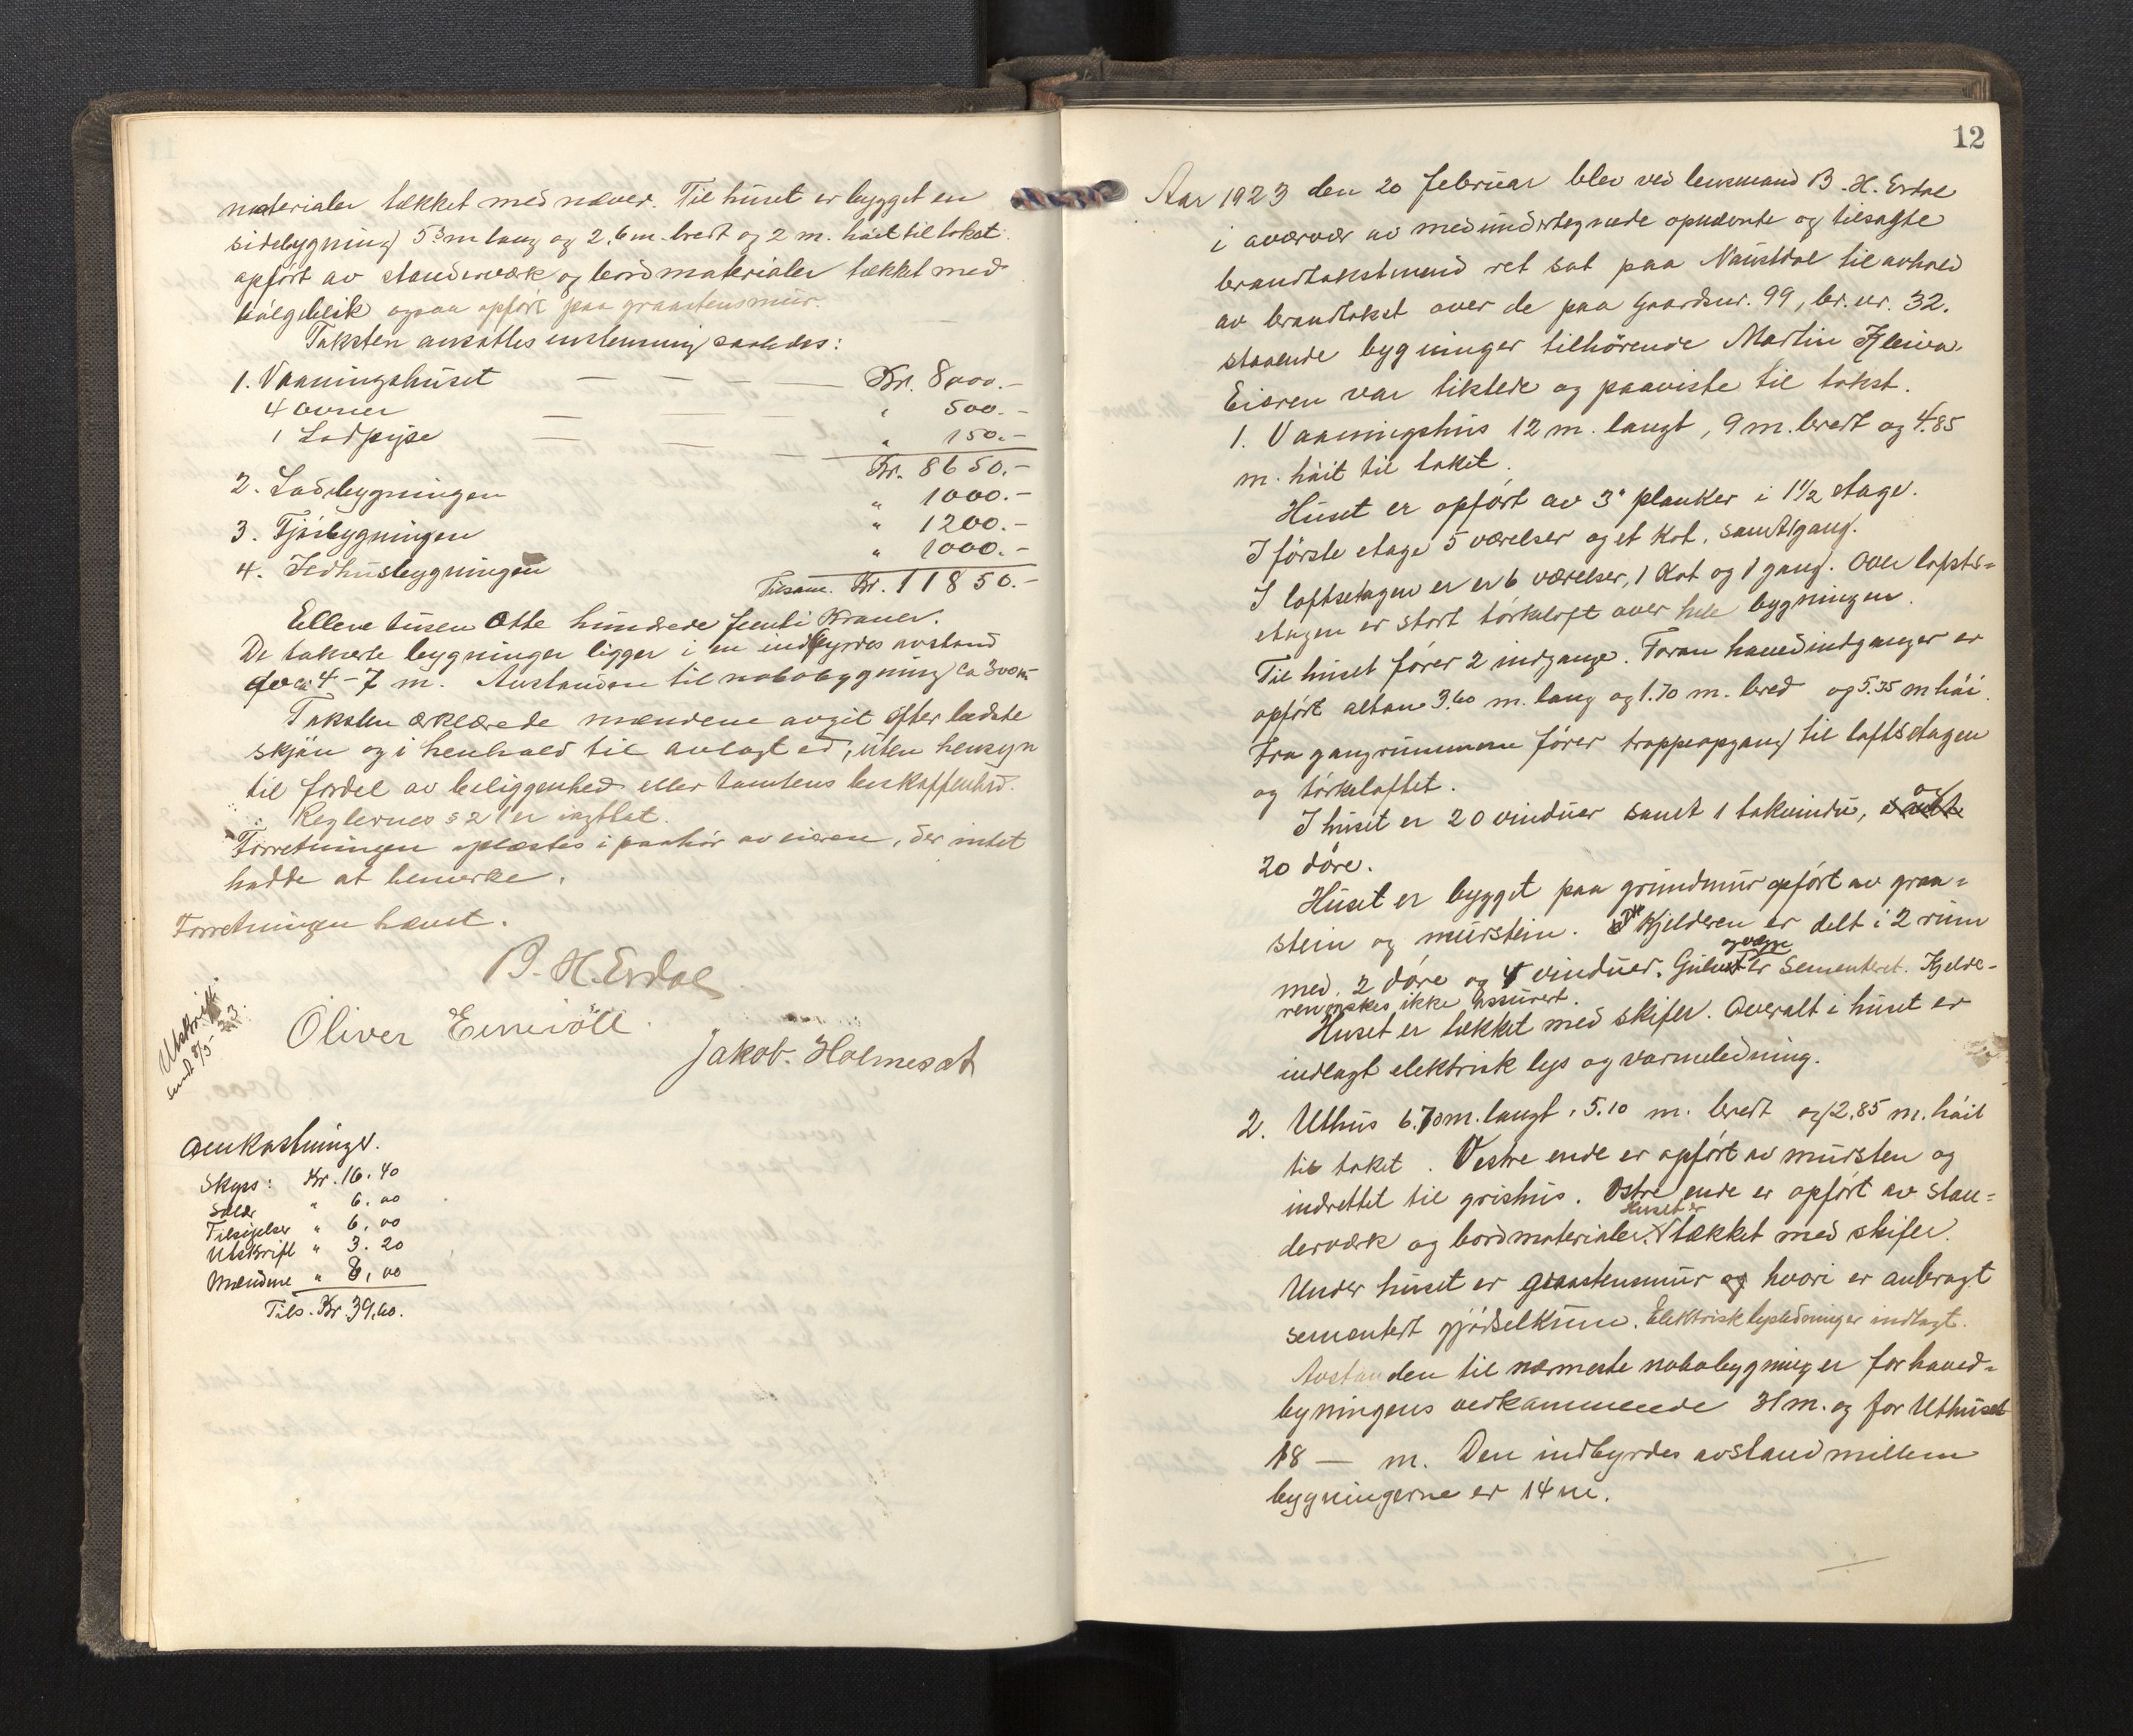 materialer tækket med næver. Til huset er bygget en
sidebygning 5³ m lang og 2,6 m. bredt og 2 m. høit til taket
opført av standervæk og bordmaterialer tækket med
bølgeblik ogsaa opført paa graastensmur.
Taksten ansattes enstemmig saaledes:
1. Vaaningshuset — — — — Kr. 8000.-
4 ovner — — — " 500.-
1 Ladpipe — — — " 150.-
Kr. 8650.-
2. Ladebygningen " 1000.-
3. Fjøsbygningen " 1200.-
4. Ildhusbygningen " 1000.-
Tilsam. Kr. 11850.-
Elleve tusen Otte hundrede femti Kroner.
De takserte bygninger ligger i en indbyrdes avstand
av ca 4-7 m. Avstanden til nabobygning ca 300 m
Taksten erklærede mændene avgit efter bedste
skjøn og i henhold til avlagt ed, uten hensyn
til fordel av beliggenhed eller tomtens beskaffenhed.
Reglernes § 21 er iagttat.
Forretningen oplæstes i paahør av eieren, der intet
hadde at bemerke.
Forretningen hævet.
B. H. Erdal
Oliver Eimivoll.
Jakob. Holmesat
Utskrift
send 8/5 23.
Omkostninger.
Skyss: Kr. 16.40
Salær " 6.00
Tilsigelser " 6,00
Utskrift " 3.20
Mændene " 8,00
Tils. Kr. 39,60.
12
Aar 1923 den 20 februar blev ved lensmand B. H. Erdal
i overvær av medundertegnede opnævnte og tilsagte
brandtakstmend ret sat paa Naustdal til avhold
av brandtakst over de paa Gaardsnr. 99, br. nr. 32.
staaende bygninger tilhørende Martin Kleiva.
Eieren var tilstede og paaviste til takst.
1. Vaaningshus 12 m. langt, 9 m. bredt og 4.85
m. høit til taket.
Huset er opført av 3" planker i 1½ etage.
I første etage 5 værelser og et Kot, samt 1 gang.
I loftsetagen er er 6 værelser, 1 Kot og 1 gang. Over lofts-
etagen er stort tørkeloft over hele bygningen.
Til huset fører 2 indgange. Foran hovedindganger er
opført altan 3.60 m. lang og 1.70 m. bred og 5.35 m høi.
Fra gangrummene fører trappeopgang til loftsetagen
og tørkeloftet.
I huset er 20 vinduer samt 1 takvindu, samt og
20 døre.
Huset er bygget paa grundmur opført av graa-
stein og murstein. Kjelderen er delt i 2 rum
med 2 døre og 4 vinduer. Gulvet og vægge er sementeret. Kjelde-
ren ønskes ikke assurert.
Huset er tækket med skifer. Overalt i huset er
indlagt elektrisk lys og varmeledning.
2. Uthus 6.70 m. langt, 5.10 m. bredt og 2,85 m. høit
til taket. Vestre ende er opført av mursten og
indrettet til grishus. Østre ende er opført av stan-
derværk og bordmaterialer. Huset er tækket med skifer.
Under huset er graastensmur og hvori er anbragt
sementert gjødselkum. Elektrisk lysledninger indlagt.
Avstanden til nærmeste nabobygning er for hoved-
bygningens vedkommende 31 m. og for Uthuset
18 — m. Den indbyrdes avstand mellem
bygningerne er 14 m.